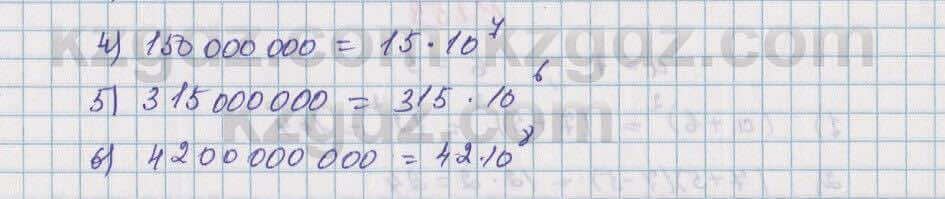 4) 150 000 000 = 15 · 10⁷
5) 315 000 000 = 315 · 10⁶
6) 4 200 000 000 = 42 · 10⁸
kzgdz.com kzgdz.com
kzgdz.com